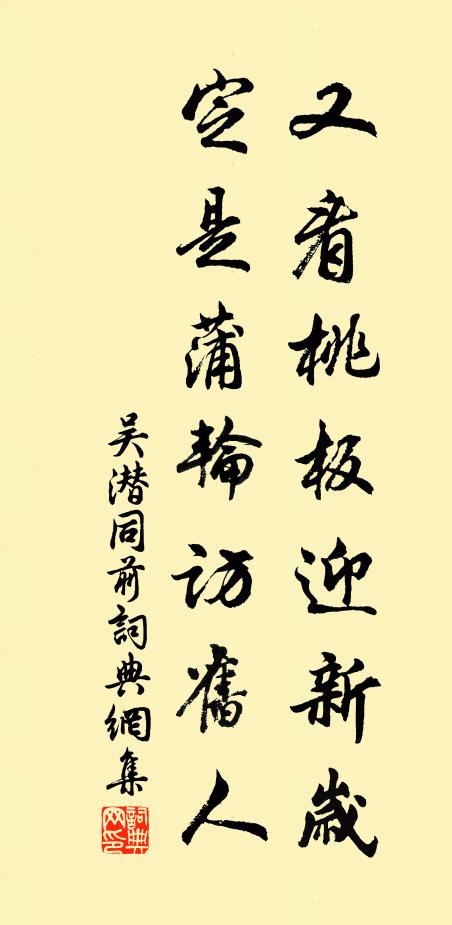 又看桃板迎新歲
定是蒲輪訪舊人
吴潜同前詞典網集
詞典網印